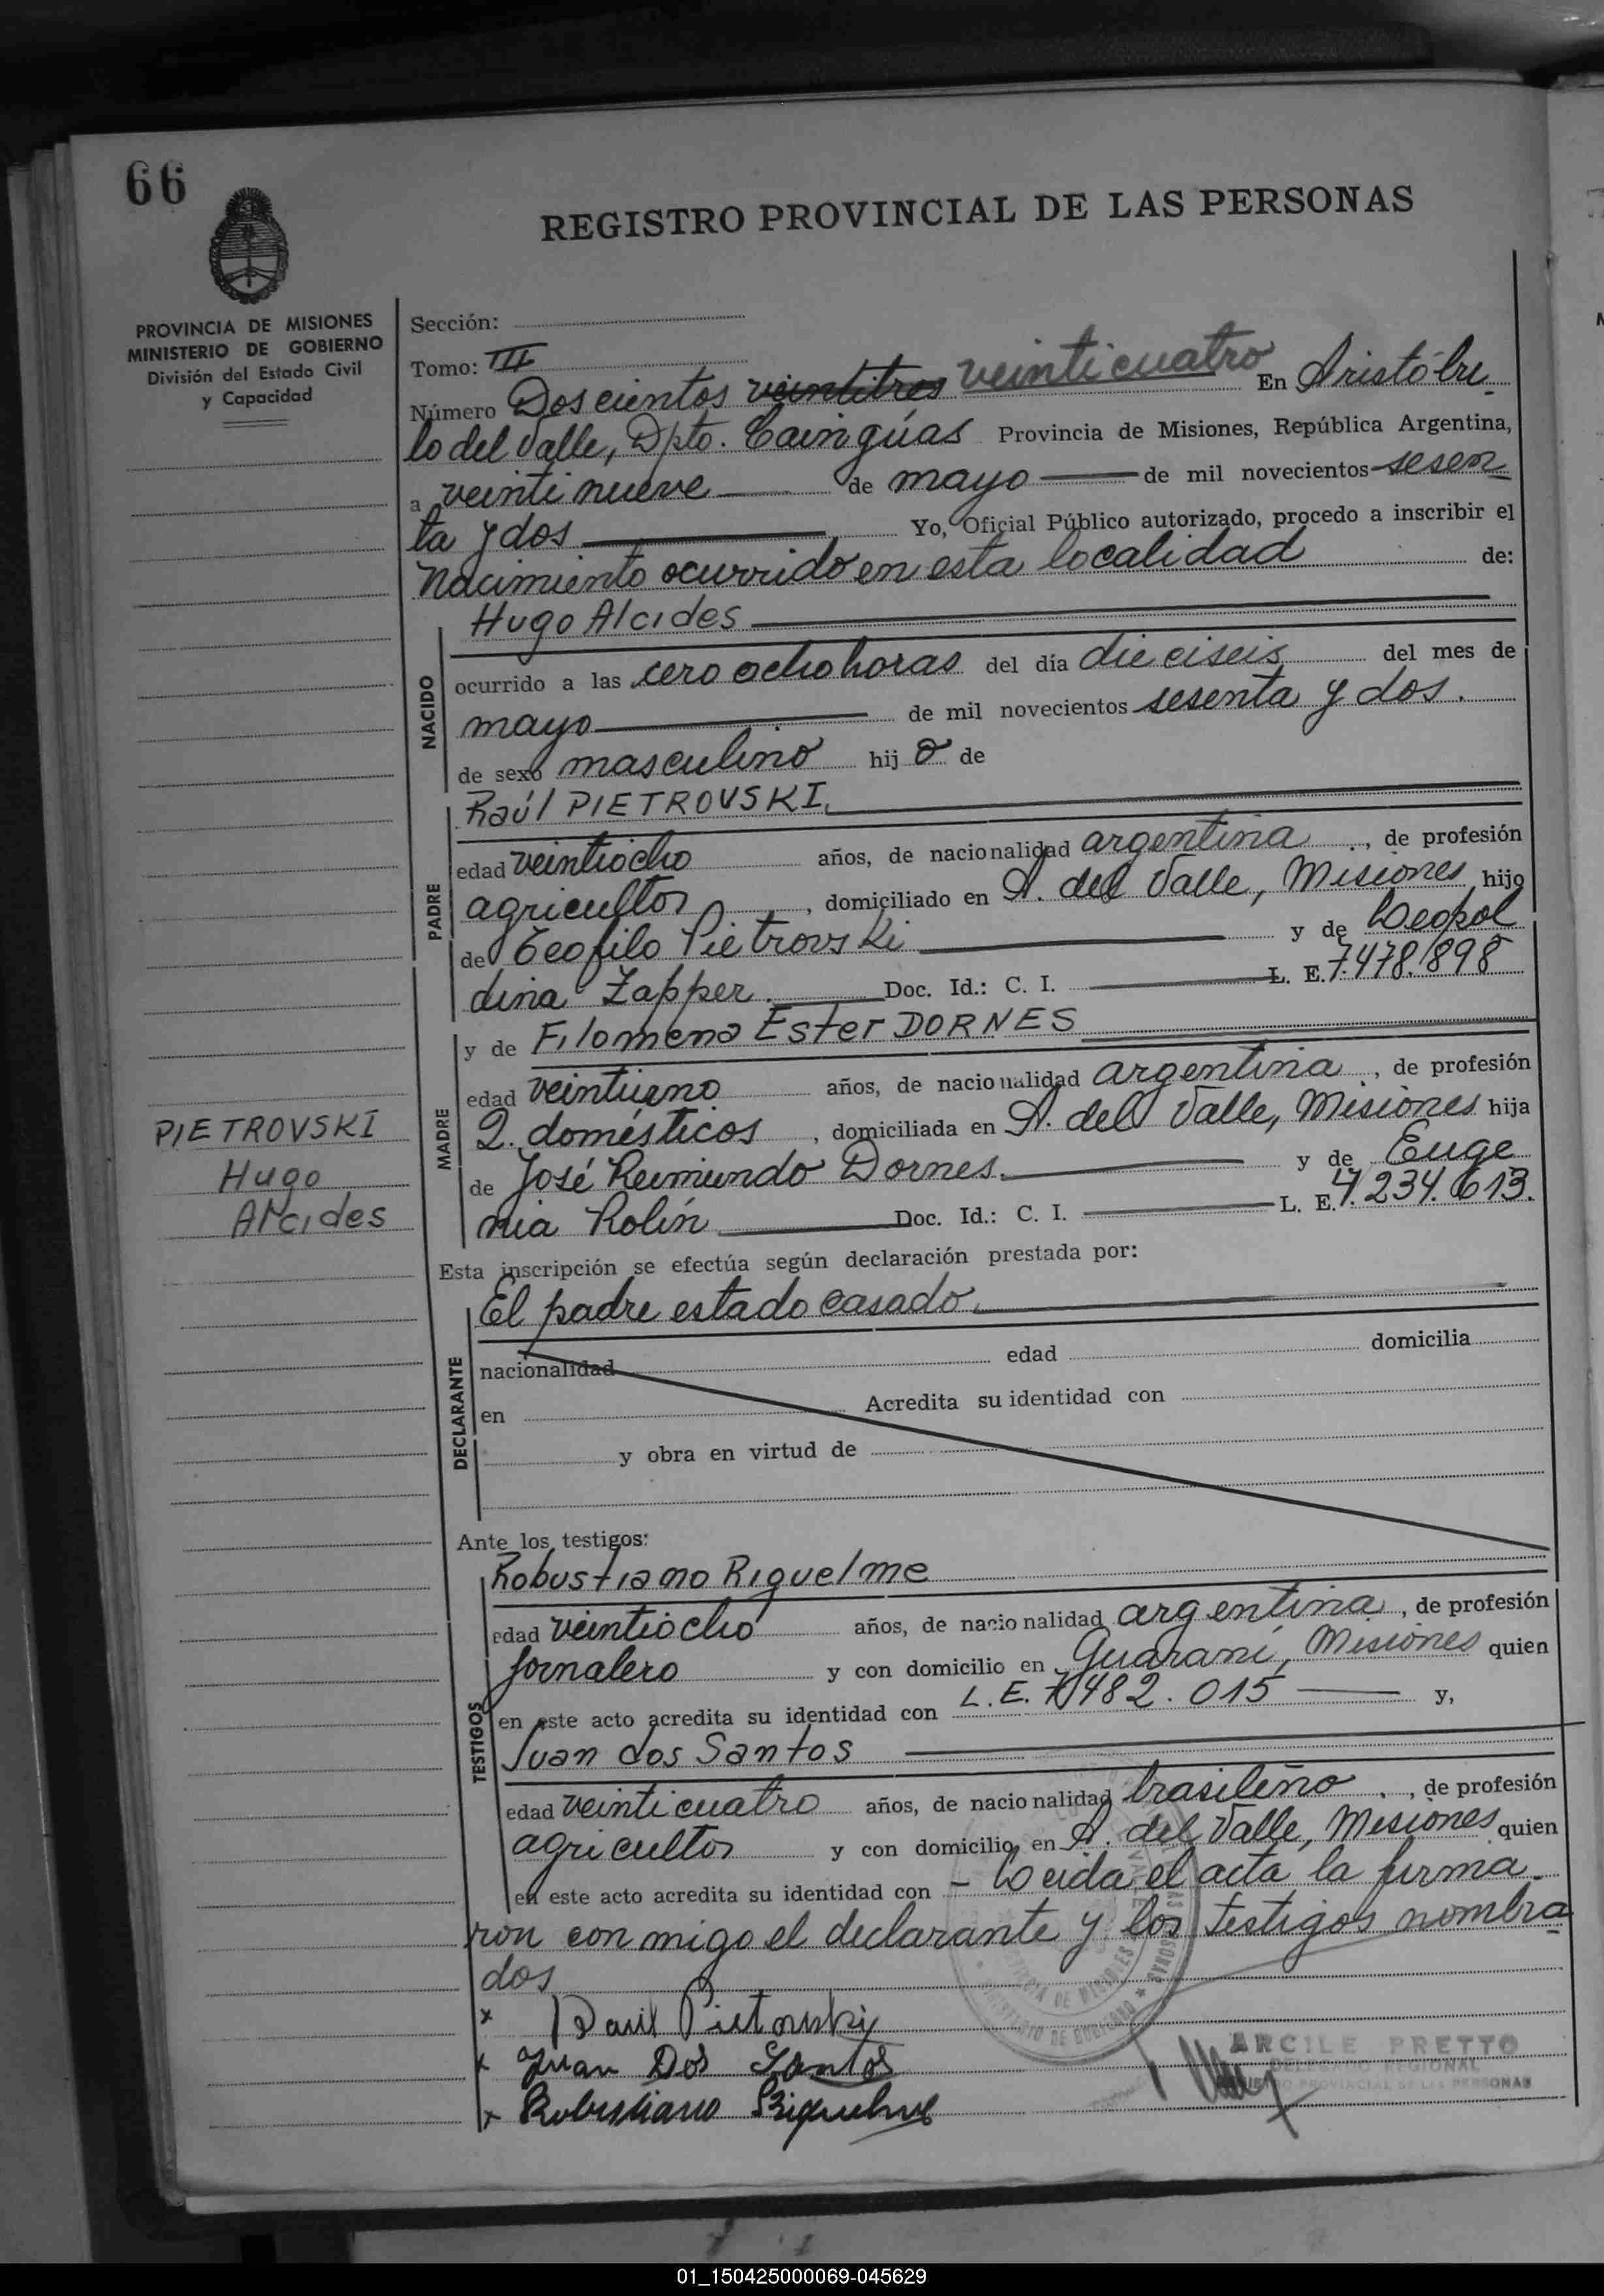 66
REGISTRO PROVINCIAL DE LAS PERSONAS
PROVINCIA DE MISIONES
MINISTERIO DE GOBIERNO
División del Estado Civil
y Capacidad
Sección:
Tomo: III
Número Doscientos veintitres veinticuatro En Aristóbu
lo del Valle, Dpto. Cainguas Provincia de Misiones, República Argentina,
a veintinueve de mayo de mil novecientos sesen
ta y dos Yo, Oficial Público autorizado, procedo a inscribir el
Nacimiento ocurrido en esta localidad de:
Hugo Alcides
NACIDO
ocurrido a las cero ocho horas del día dieciseis del mes de
mayo de mil novecientos sesenta y dos.
de sexo masculino hijo de
Raúl PIETROVSKI.
PADRE
edad veintiocho años, de nacionalidad argentina, de profesión
agricultor, domiciliado en A. del Valle, Misiones hijo
de Teofilo Pietrovski y de Leopol
dina Zapper. Doc. Id.: C. I. L. E. 7.478.898
y de Filomena Ester DORNES
MADRE
edad veintiuno años, de nacionalidad argentina, de profesión
Q. domésticos, domiciliada en A. del Valle, Misiones hija
de José Reimundo Dornes. y de Euge
nia Rolín Doc. Id.: C. I. L. E. 4.234.613.
PIETROVSKI
Hugo
Alcides
Esta inscripción se efectúa según declaración prestada por:
El padre estado casado.
DECLARANTE
nacionalidad edad domicilia
en Acredita su identidad con
y obra en virtud de
Ante los testigos:
Robustiano Riquelme
TESTIGOS
edad veintiocho años, de nacionalidad argentina, de profesión
jornalero y con domicilio en Guaraní, Misiones quien
en este acto acredita su identidad con L. E. 7.482.015 y,
Juan dos Santos
edad veinticuatro años, de nacionalidad brasileño, de profesión
agricultor y con domicilio en A. del Valle, Misiones quien
en este acto acredita su identidad con – Leida el acta la firma
ron con migo el declarante y los testigos nombra
dos
x Raul Pietrovski
x Juan Dos Santos
x Robustiano Riquelme
ARCILE PRETTO
DELEGADO REGIONAL
REGISTRO PROVINCIAL DE LAS PERSONAS
01_150425000069-045629